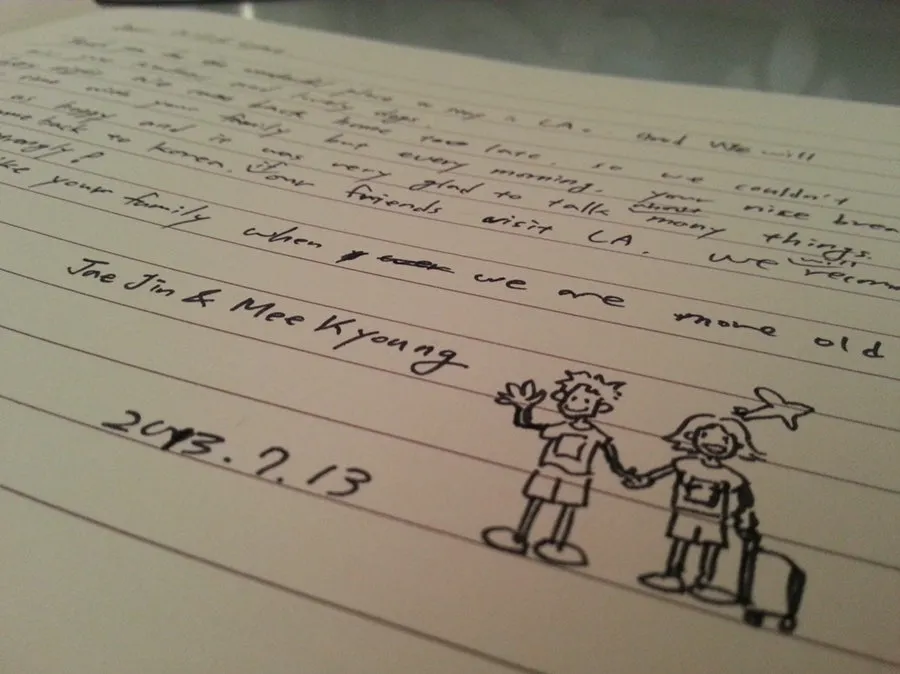 place to stay in LA. and We will
and lovely dogs.
come back home too late. so we couldn't
with your family but every morning. your nice brea
as happy and it was very glad to talk about many things.
me back to Korea. If our friends visit LA. We will recom
ongly!
ke your family when we are more old
Jae Jin & Mee Kyoung
2013. 7. 13